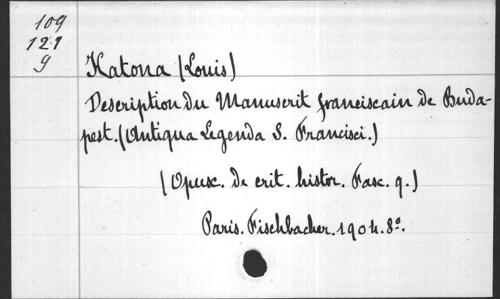 109
121
9
Katona (Louis)
Description du Manuscrit franciscain de Buda-
pest. (Antiqua Legenda S. Francisci.)
(Opusc. de crit. histor. Fasc. 9.)
Paris. Fischbacher. 1904. 8°.